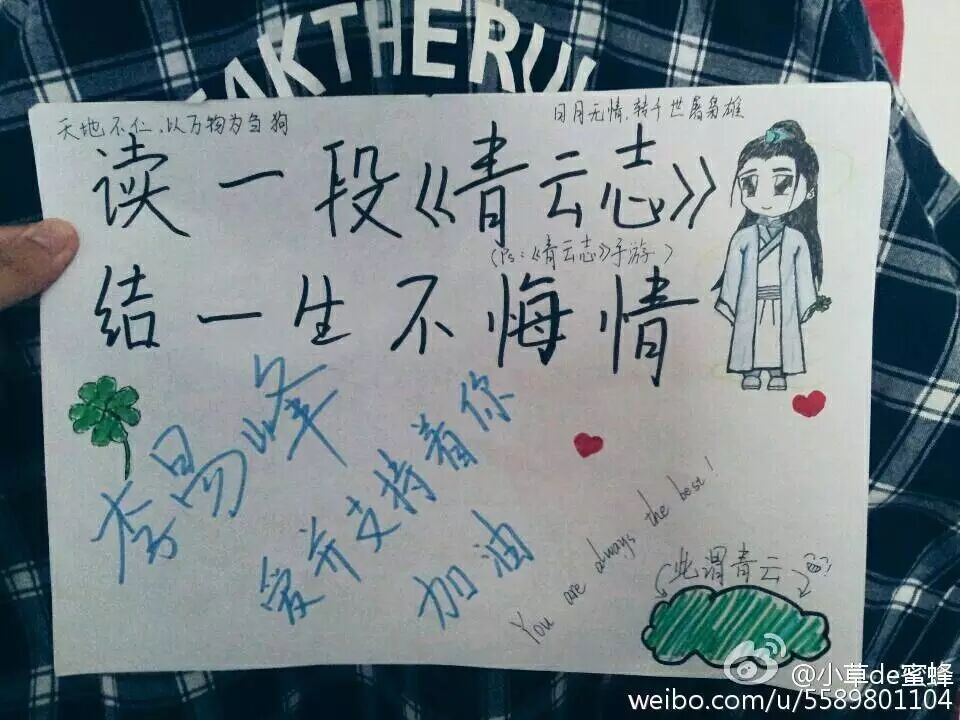 AKTHERU
天地不仁，以万物为刍狗
日月无情，转千世屠枭雄
读一段《青云志》
（Ps：《青云志》手游）
结一生不悔情
李易峰
爱并支持着你
加油
You are always the best!
此谓青云
@小草de蜜蜂
weibo.com/u/5589801104